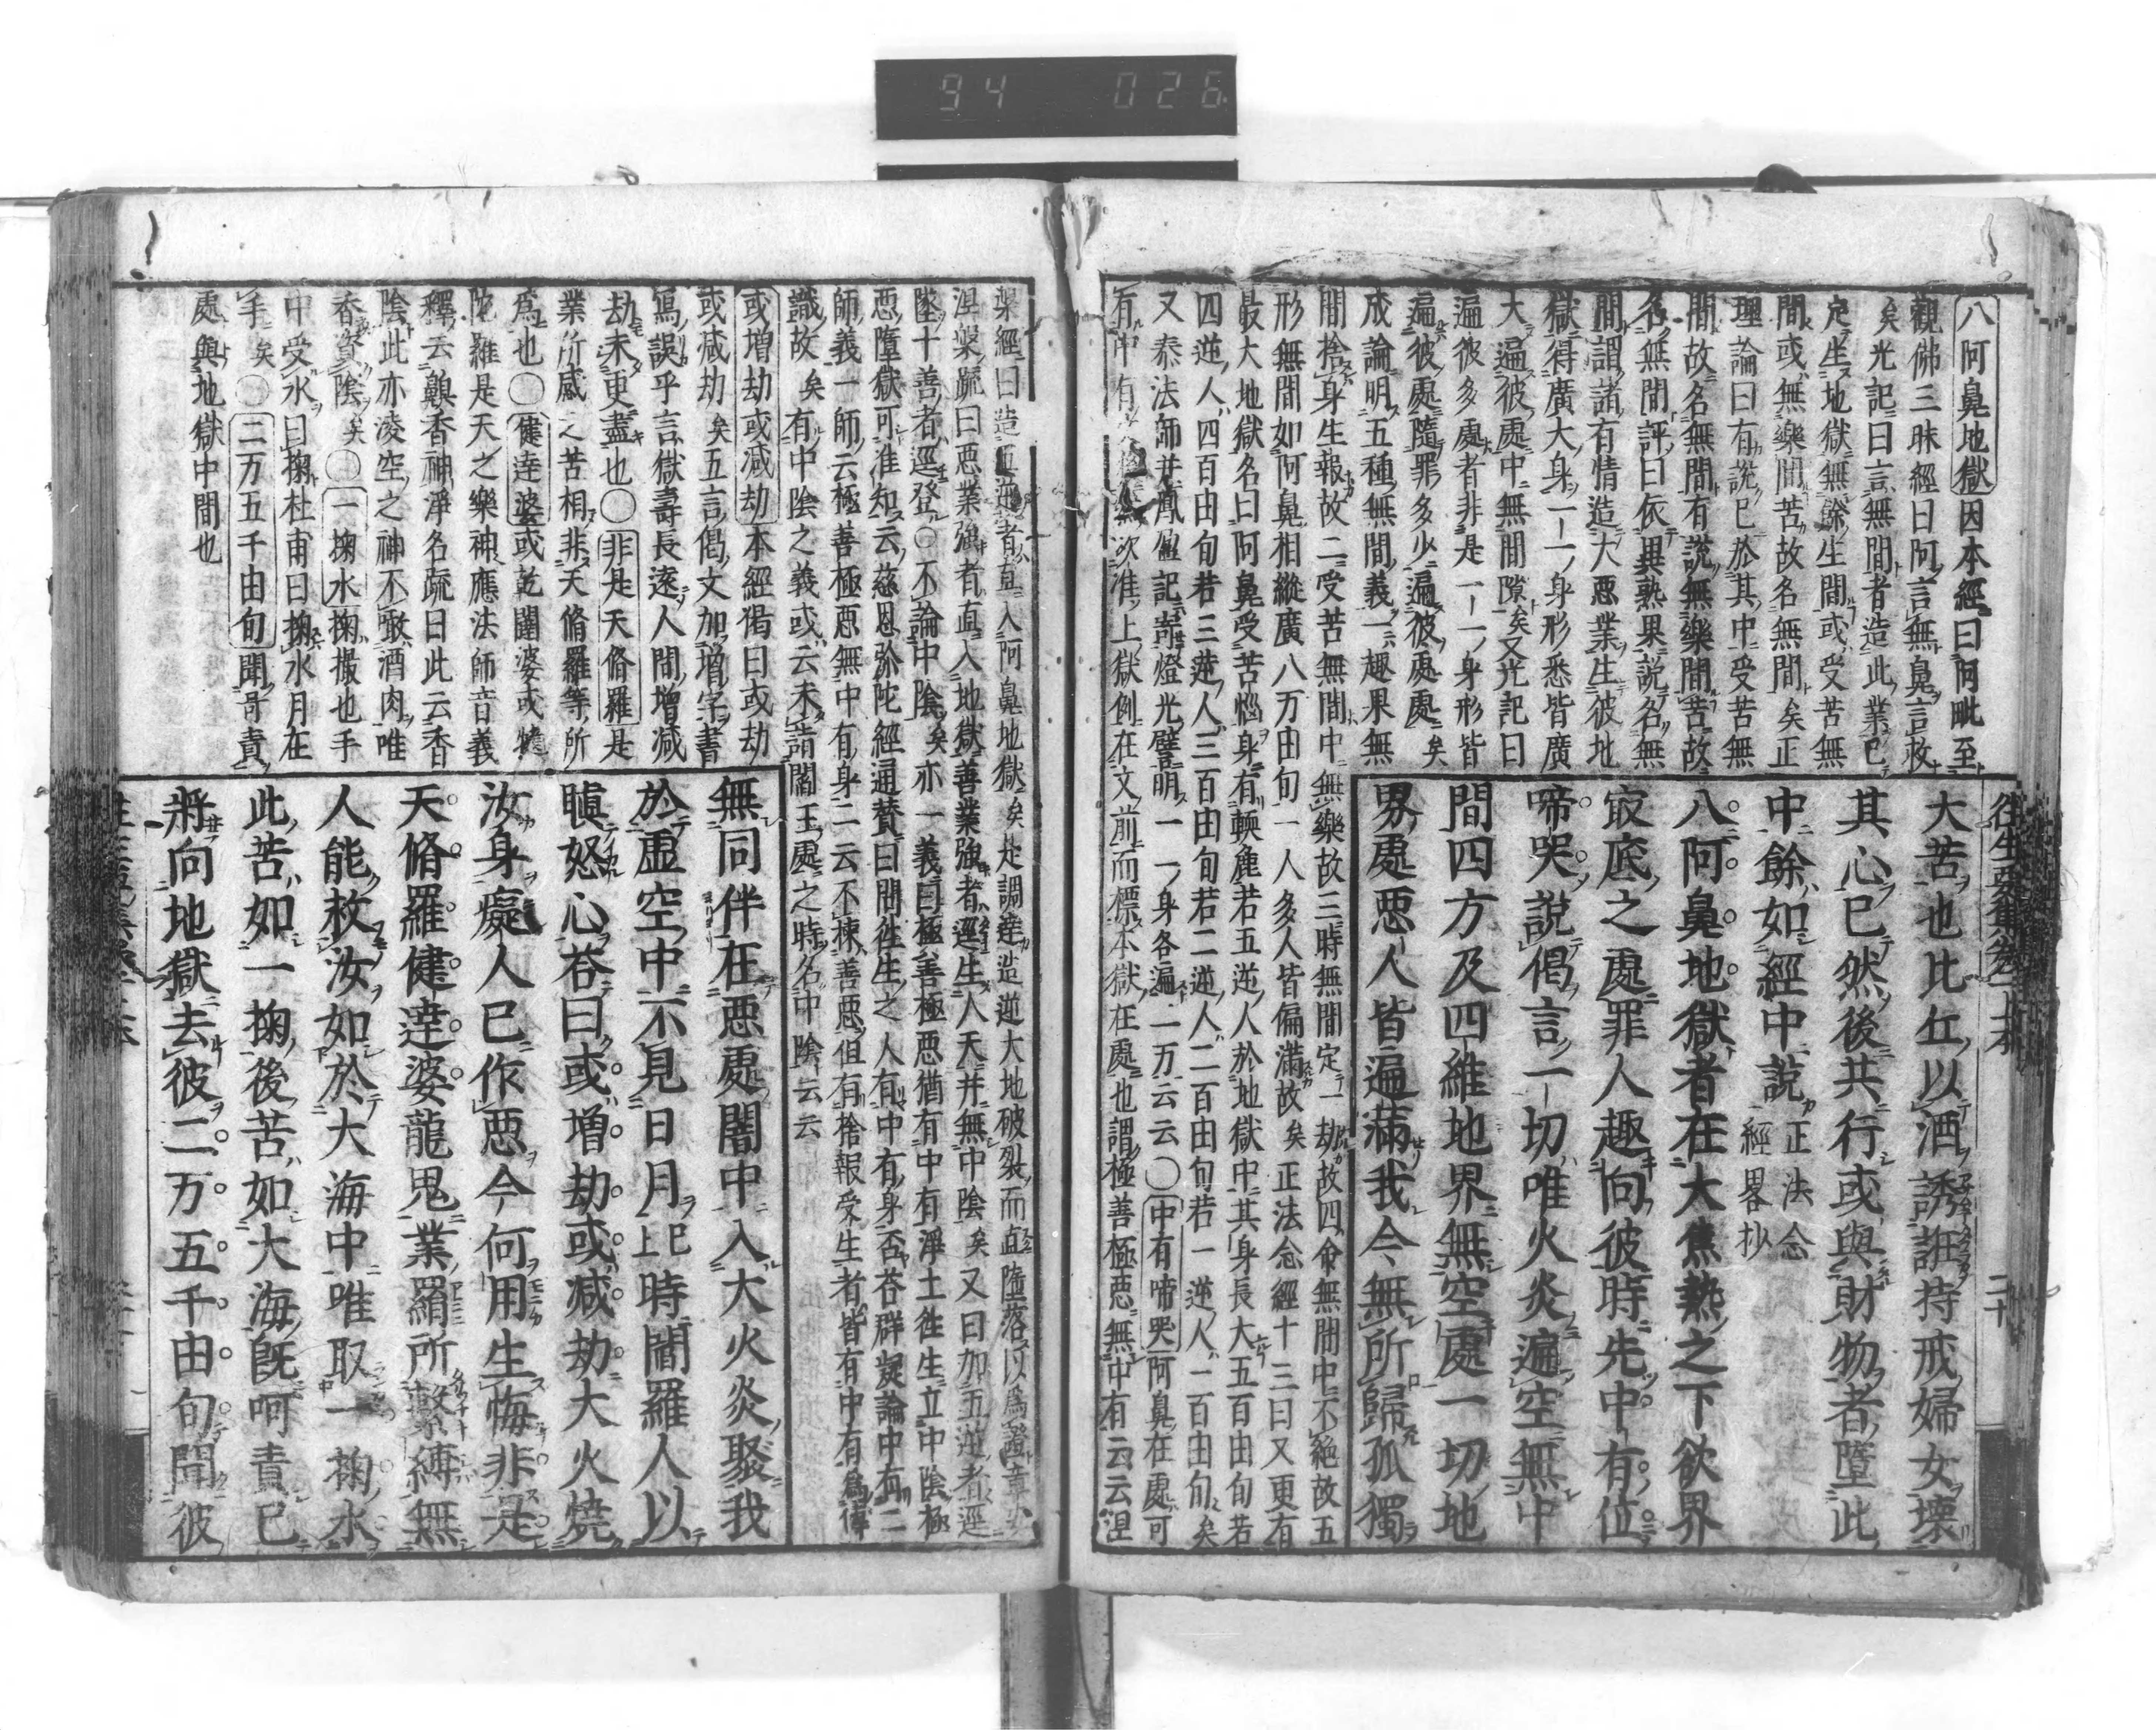 94 026
八阿鼻地獄因本經曰阿毗至
觀佛三昧經曰阿言無鼻言救
矣光記曰言無間者造此業已
定生地獄無餘生間或受苦無
間或無樂間苦故名無間矣正
理論曰有說已於其中受苦無
間故名無間有說無樂間苦故
名無間評曰依異熟果說名無
間謂諸有情造大惡業生彼地
獄得廣大身一一身形悉皆廣
大遍彼處中無間隙矣又光記曰
遍彼多處者非是一一身形皆
遍彼處隨罪多少遍彼處處矣
成論明五種無間義一趣果無
間捨身生報故二受苦無間中無樂故三時無間定一劫故四命無間中不絕故五
形無間如阿鼻相縱廣八万由旬一人多人皆徧滿故矣正法念經十三曰又更有
最大地獄名曰阿鼻受苦惱身有輭麁若五逆人於地獄中其身長大五百由旬若
四逆人四百由旬若三逆人三百由旬若二逆人二百由旬若一逆人一百由旬矣
又泰法師并鳳僊記寄燈光譬明一一身各遍一万云云○中有啼哭阿鼻在處可
欲准上獄例在文前而標本獄在處也謂極善極惡無中有云云涅
往生要集卷上本
二十
大苦也比丘以酒誘誑持戒婦女壞
其心已然後共行或與財物者墮此
中餘如經中說正法念經畧抄
八阿鼻地獄者在大焦熱之下欲界
㝡底之處罪人趣向彼時先中有位
啼哭說偈言一切唯火炎遍空無中
間四方及四維地界無空處一切地
界處惡人皆遍滿我今無所歸孤獨
槃經曰造五逆者直入阿鼻地獄矣是調達造逆大地破裂而直墮落以爲證章安
涅槃疏曰惡業強者直入地獄善業強者逕生人天并無中陰矣又曰加五逆者逕
墜十善者逕登○不論中陰矣亦一義曰極善極惡猶有中有淨土往生立中陰極
惡墮獄可准知云慈恩弥陀經通賛曰問往生之人有中有身否荅群疑論中有二
師義一師云極善極惡無中有身二云不揀善惡但有捨報受生者皆有中有爲傳
識故矣有中陰之義或云未詣閻王處之時名中陰云云
或增劫或減劫本經偈曰或劫
或減劫矣五言偈文加增字書
寫誤乎言獄壽長遠人間增減
劫未更盡也○非是天脩羅是
業所感之苦相非天脩羅等所
爲也○健達婆或乾闥婆或犍
陀羅是天之樂神應法師音義
釋云齅香神淨名疏曰此云香
陰此亦凌空之神不噉酒肉唯
香資陰矣○一掬水掬撮也手
中受水曰掬杜甫曰掬水月在
手矣○二万五千由旬聞哥責
處與地獄中間也
無同伴在惡處闇中入大火炎聚我
於虛空中不見日月已上時閻羅人以
瞋怒心荅曰或增劫或減劫大火燒
汝身癡人已作惡今何用生悔非是
天脩羅健達婆龍鬼業羂所繫縛無
人能救汝如於大海中唯取一掬水
此苦如一掬後苦如大海旣呵責已
將向地獄去彼二万五千由旬聞彼